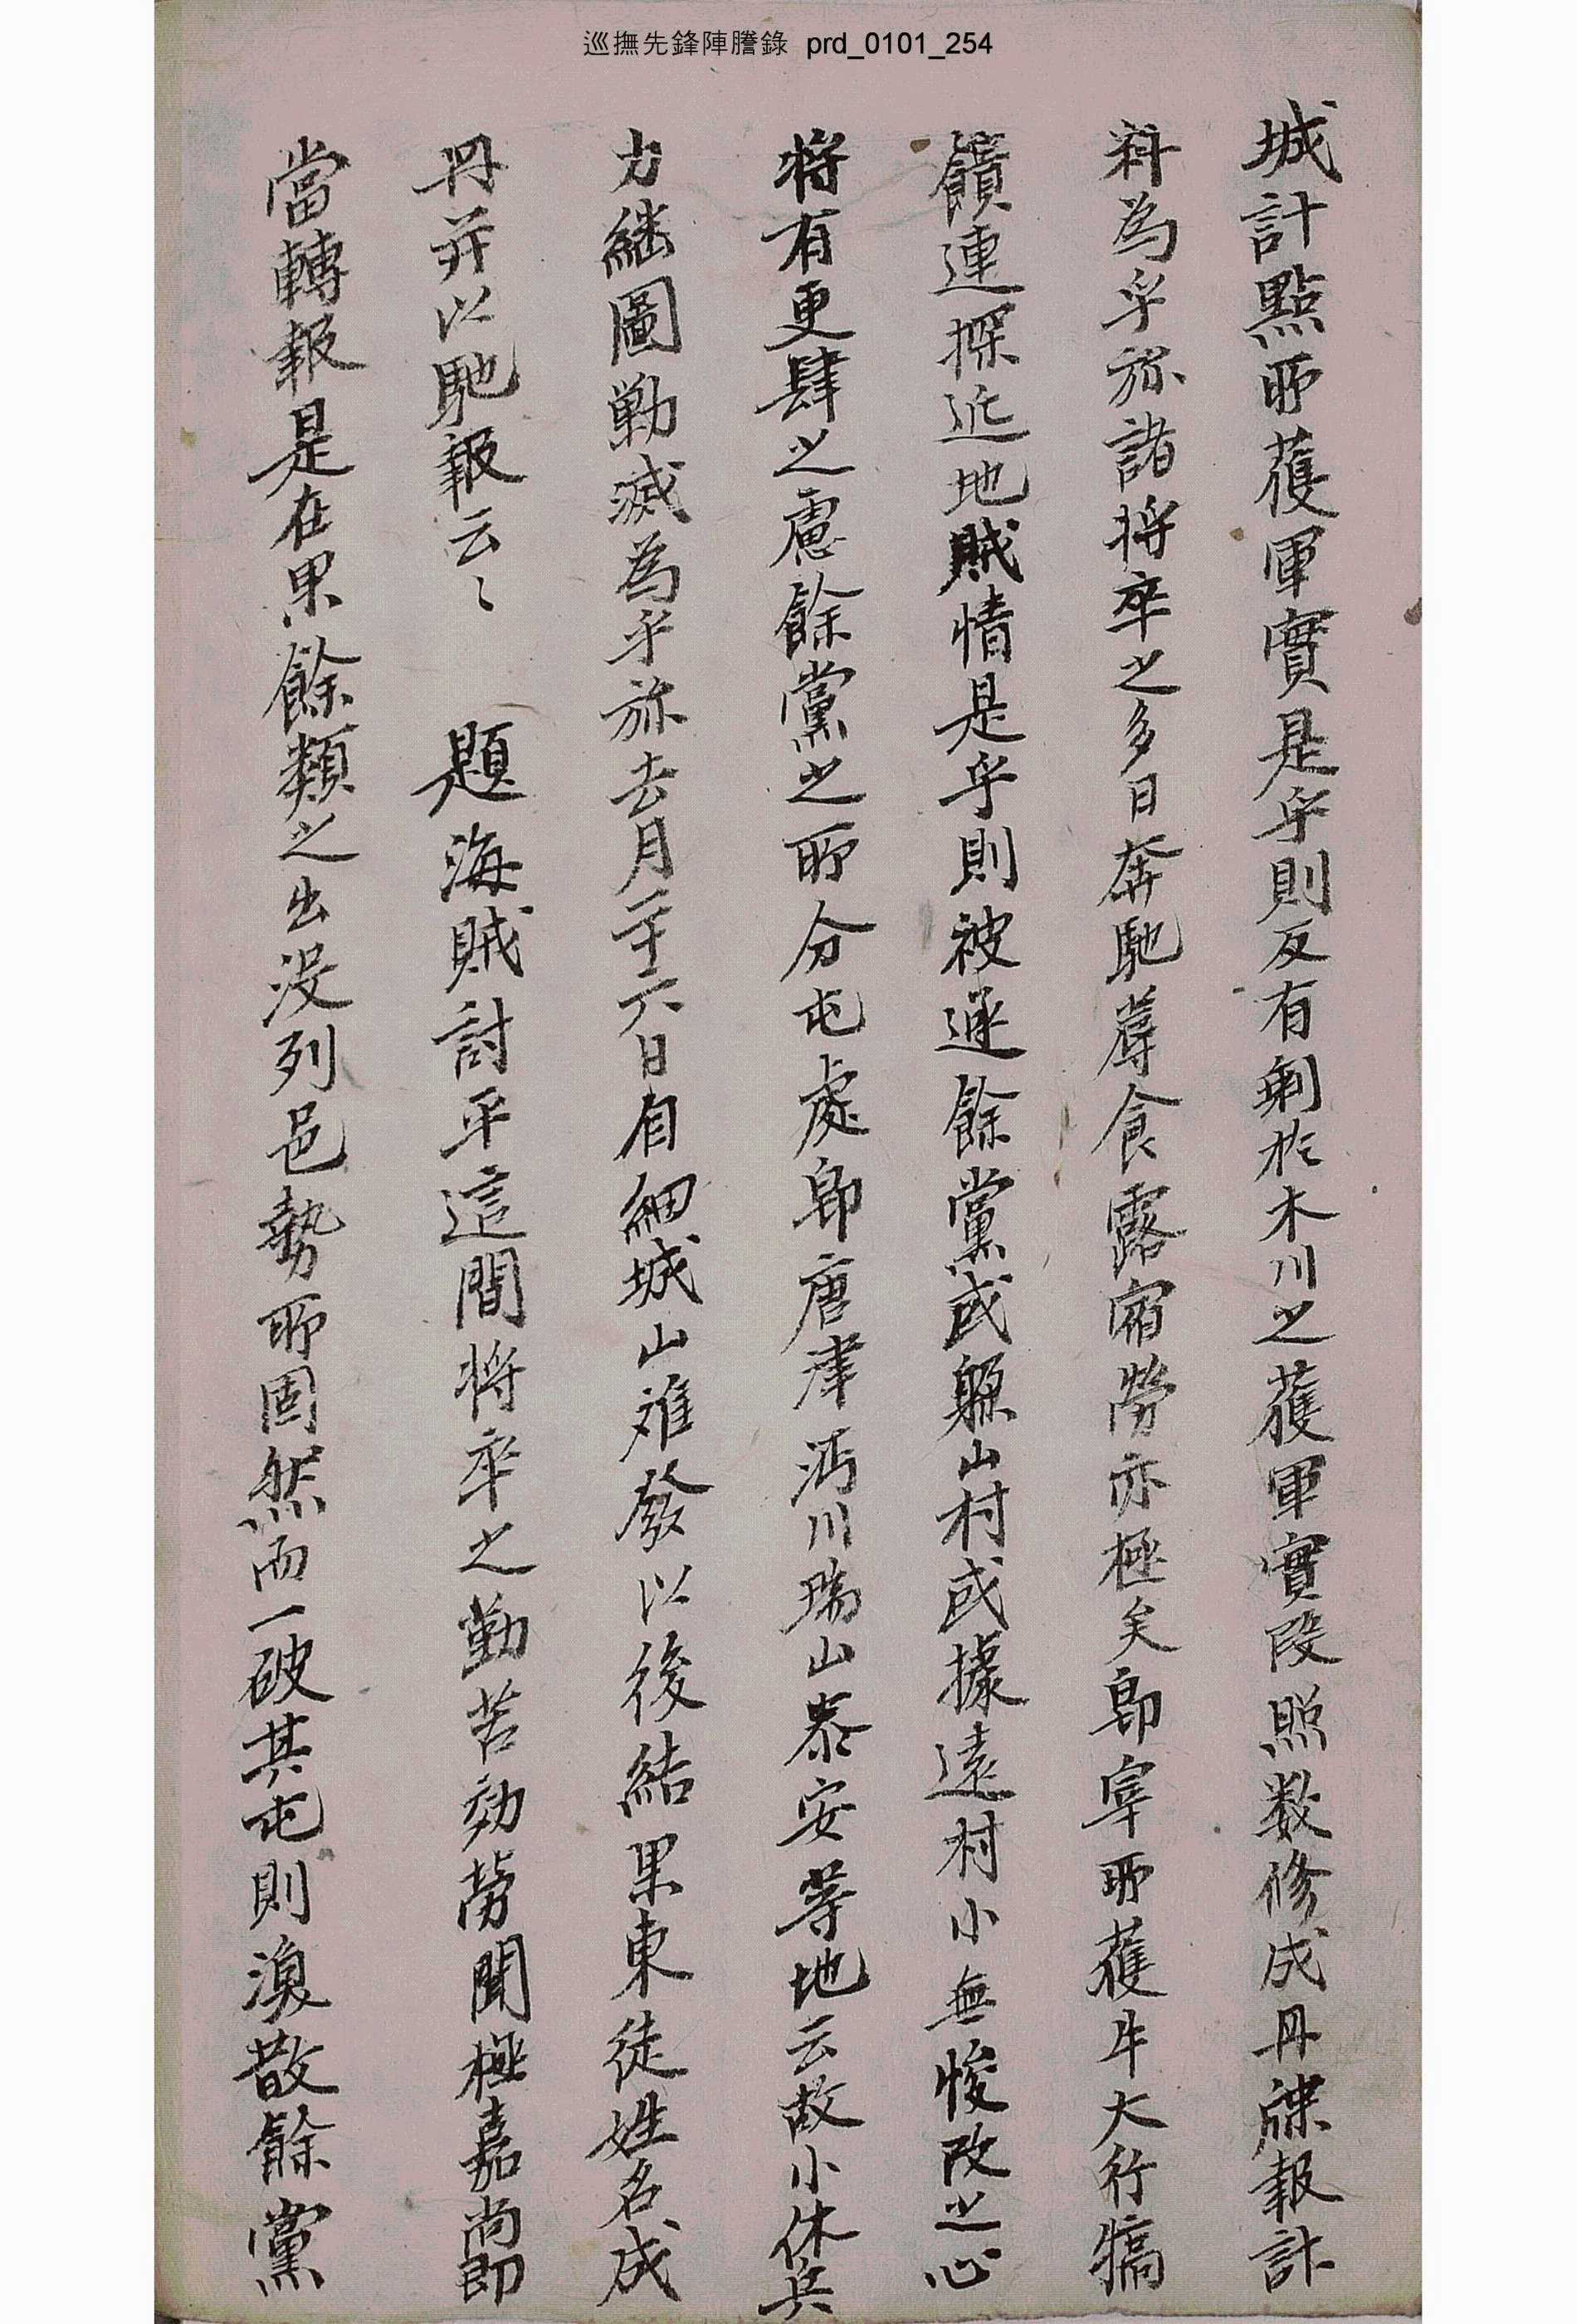 巡撫先鋒陣謄錄 prd_0101_254
城計點所獲軍實是乎則反有剩於木川之獲軍實段照数修成冊牒報計
料為乎旀諸將卒之多日奔馳蓐食露宿勞亦極矣即宰所獲牛大行犒
饋連探近地賊情是乎則被逋餘黨或躱山村或據遠村小無悛改之心
將有更肆之慮餘黨之所分屯處即唐津沔川瑞山泰安等地云故小休兵
力継圖勦滅為乎旀去月二十六日自細城山难發以後結果東徒姓名成
冊并以馳報云〻 題海賊討平這間將卒之勤苦効勞聞極嘉尚即
當轉報是在果餘類之出没列邑勢所固然而一破其屯則渙散餘黨